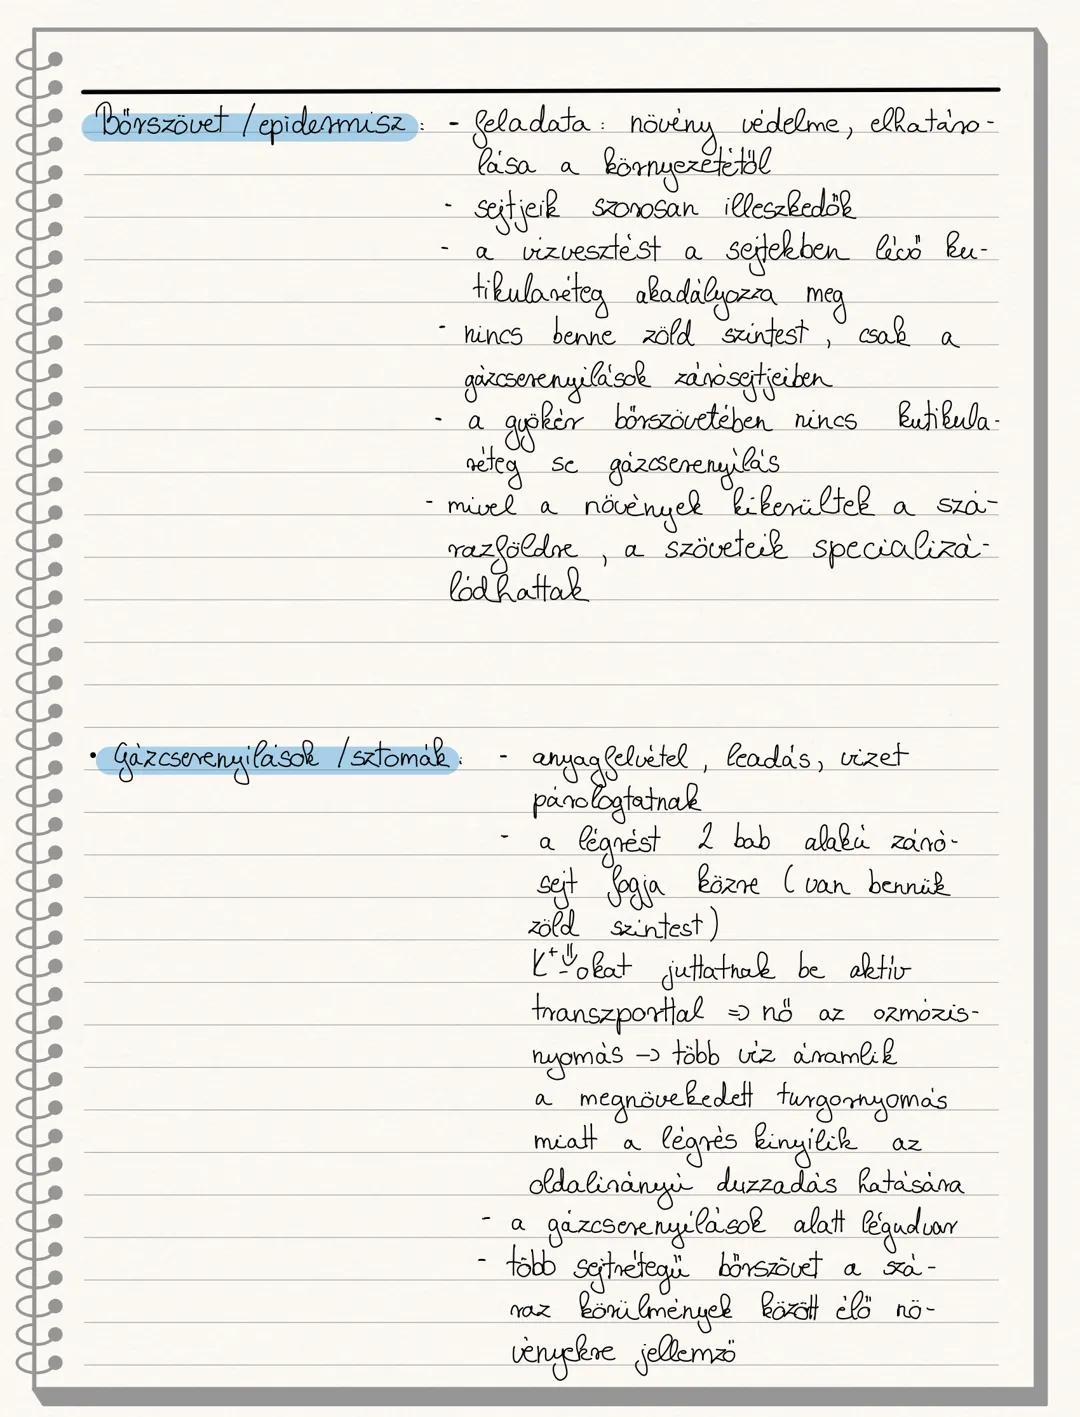 Bőrszövet / epidermisz: - feladata: növény védelme, elhatáro-
lása a környezetétől
- sejtjeik szorosan illeszkedők
- a vízvesztést a sejtekben lécő ku-
tikularéteg akadályozza meg
- nincs benne zöld színtest, csak a
gázcserenyílások zárósejtjeiben
- a gyökér bőrszövetében nincs kutikula-
réteg se gázcserenyílás
- mivel a növények kikerültek a szá-
razföldre, a szöveteik specializá-
lódhattak
• Gázcserenyílások / sztómák: - anyagfelvétel, leadás, vizet
párologtatnak
- a légrést 2 bab alakú záró-
sejt fogja közre (van bennük
zöld színtest)
K⁺-okat juttatnak be aktív
transzporttal => nő az ozmózis-
nyomás -> több víz áramlik
a megnövekedett turgornyomás
miatt a légrés kinyílik az
oldalirányú duzzadás hatására
- a gázcserenyílások alatt légudvar
- több sejtrétegű bőrszövet a szá-
raz körülmények között élő nö-
vényekre jellemző